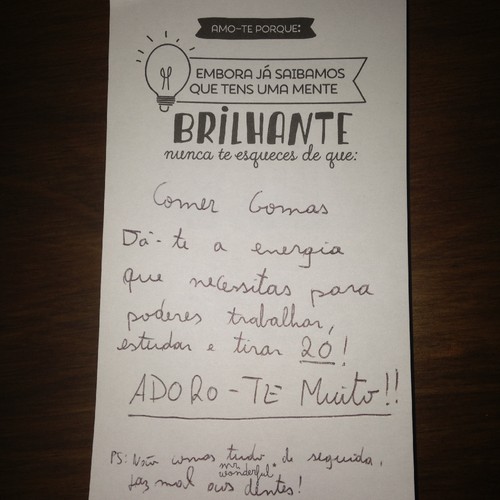 AMO-TE PORQUE:
EMBORA JÁ SAIBAMOS
QUE TENS UMA MENTE
BRILHANTE
nunca te esqueces de que:
Comer Gomas
Dá-te a energia
que necessitas para
poderes trabalhar,
estudar e tirar 20!
ADORO-TE MUITO!!
PS: Não comas tudo de seguida,
mr.
wonderful*
faz mal aos dentes!